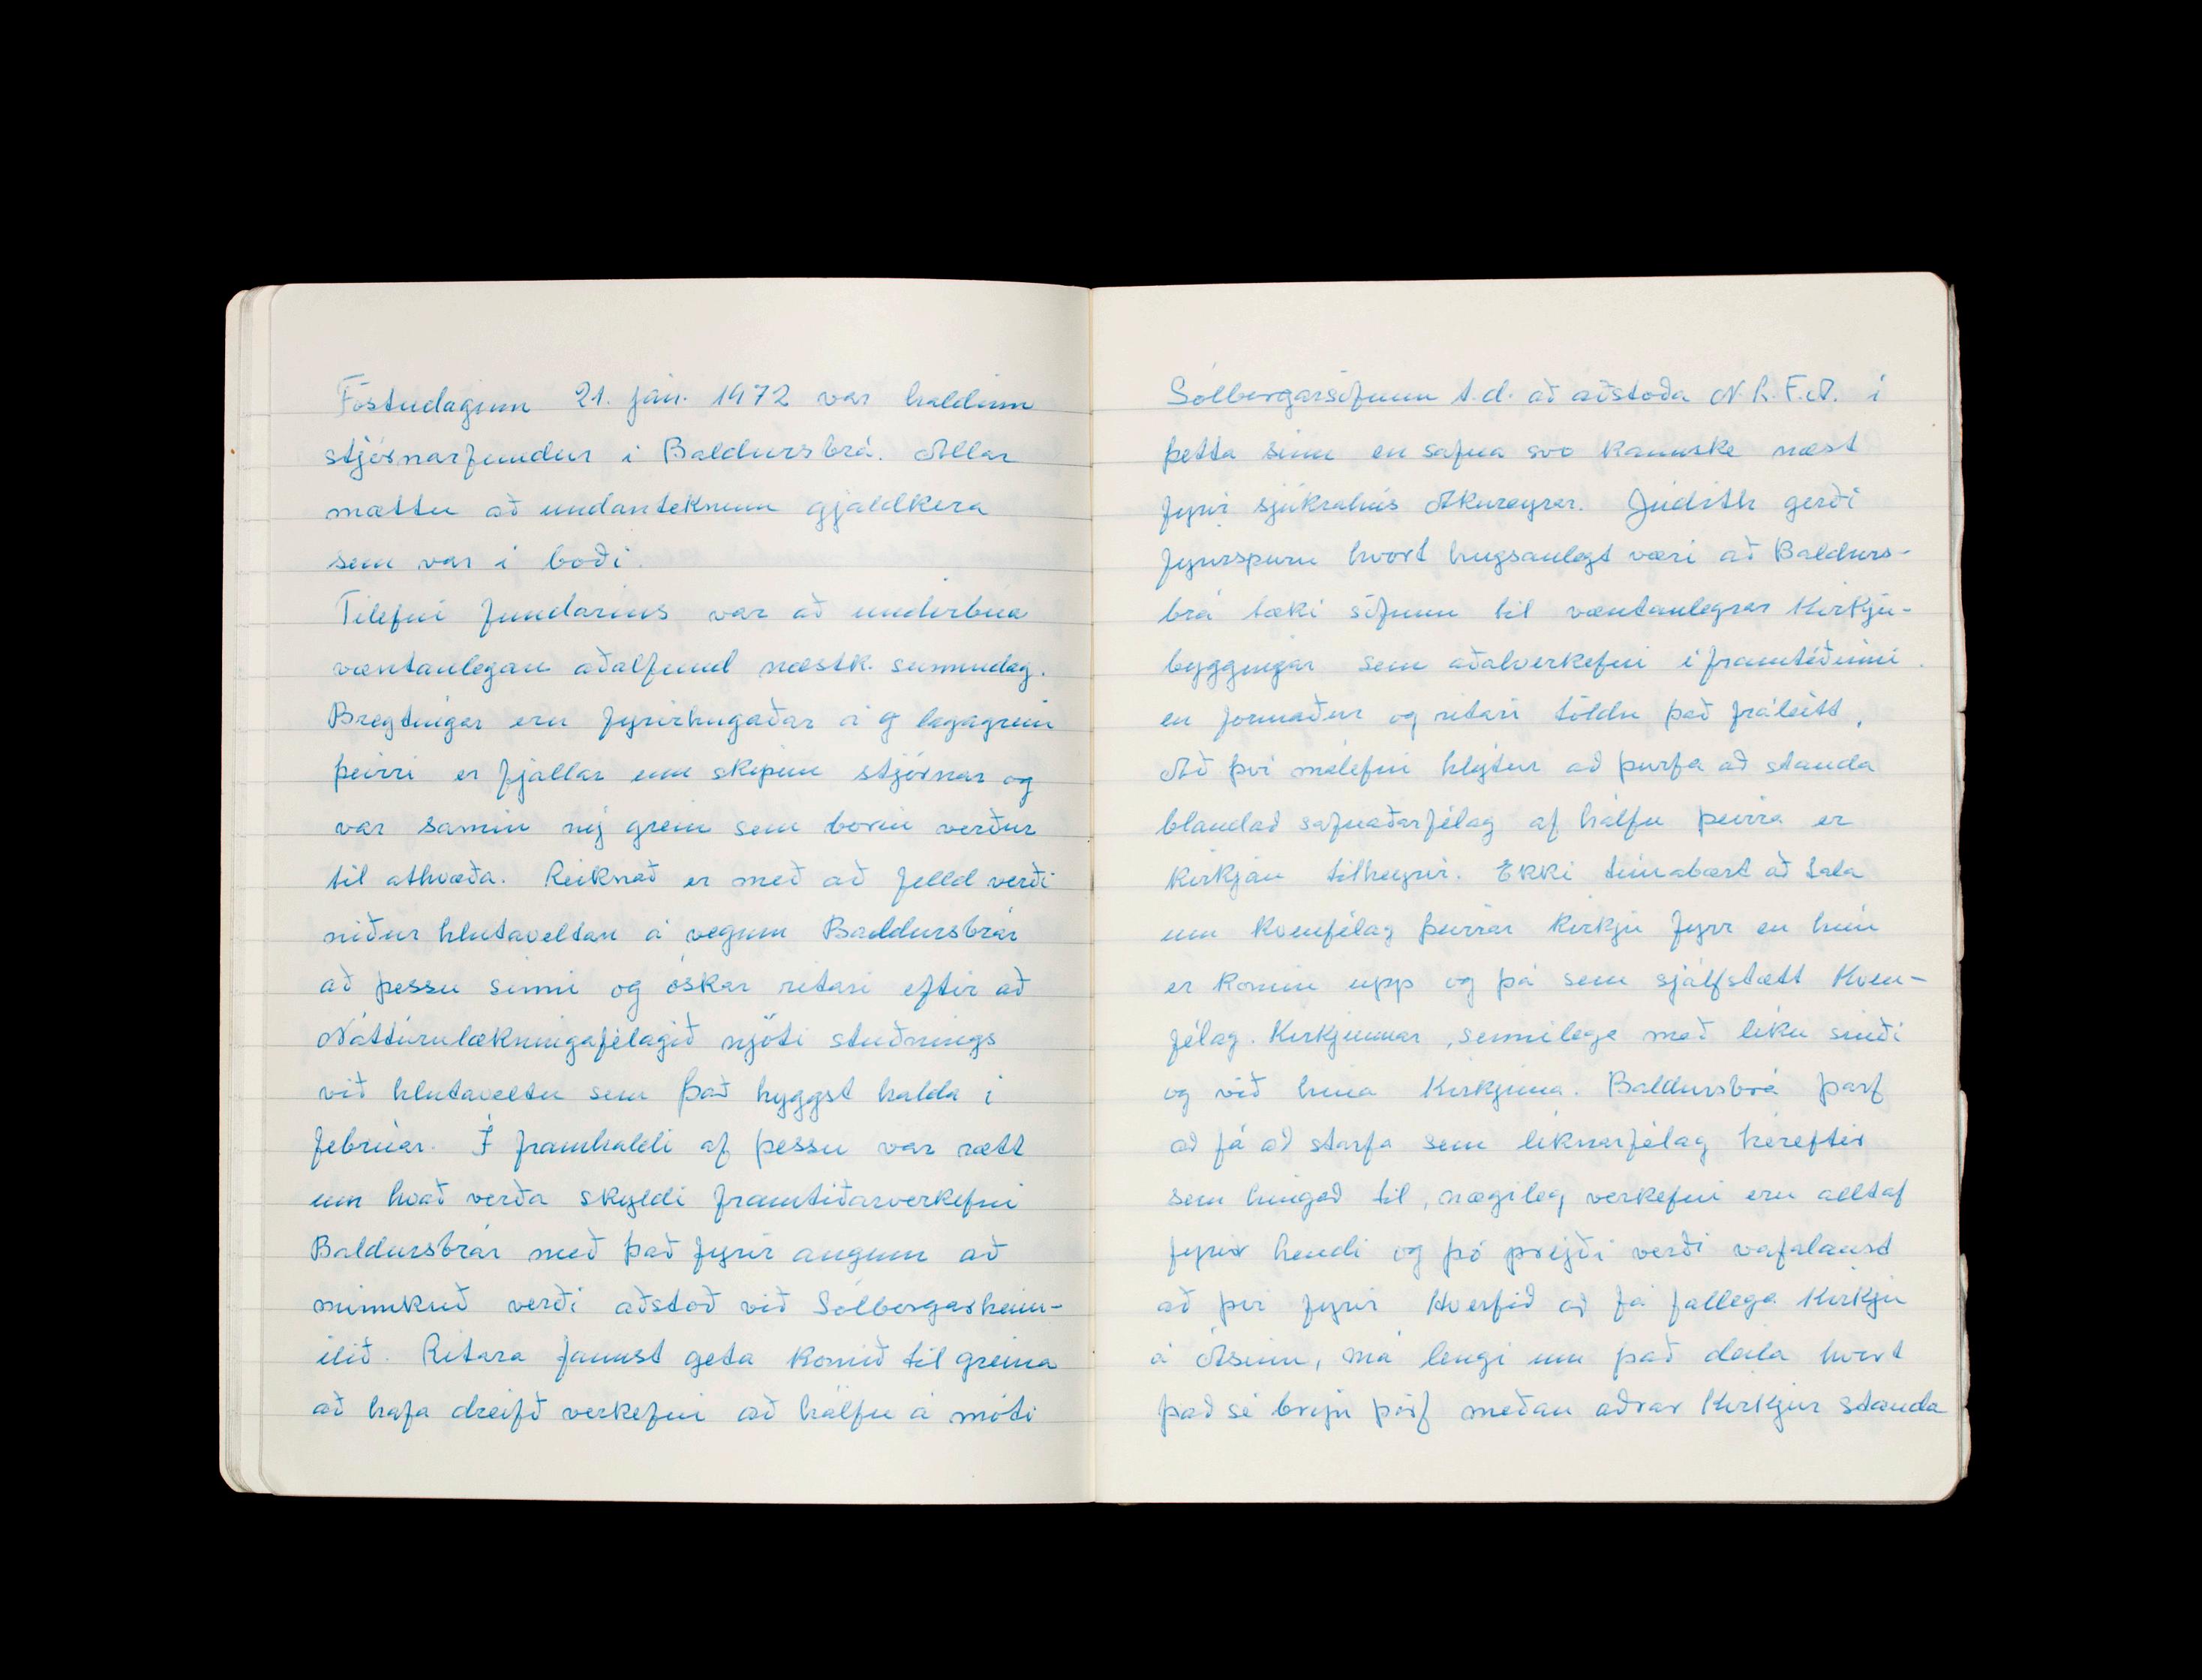 Föstudaginn 21. jan. 1972 var haldinn
stjórnarfundur í Baldursbrá. Allar
mættu að undanteknum gjaldkera
sem var í boði.
Tilefni fundarins var að undirbúa
væntanlegan aðalfund næstk. sunnudag.
Breytingar eru fyrirhugaðar á 9 lagagrein
þeirri er fjallar um skipun stjórnar og
var samin ný grein sem borin verður
til athvæða. Reiknað er með að felld verði
niður hlutaveltan á vegum Baldursbrár
að þessu sinni og óskar ritari eftir að
Náttúrulækningafélagið njóti stuðnings
við hlutaveltu sem það hyggst halda í
febrúar. Í framhaldi af þessu var rætt
um hvað verða skyldi framtíðarverkefni
Baldursbrár með það fyrir augum að
minnkuð verði aðstoð við Sólborgarheim-
ilið. Ritara fannst geta komið til greina
að hafa dreifð verkefni að hálfu á móti
Sólborgarsöfnun t.d. að aðstoða N.L.F.A. í
þetta sinn en safna svo kannske næst
fyrir sjúkrahús Akureyrar. Júdith gerði
fyrirspurn hvort hugsanlegt væri að Baldurs-
brá tæki söfnun til væntanlegrar Kirkju-
byggingar sem aðalverkefni í framtíðinni.
en formaður og ritari töldu það fráleitt,
Að því málefni hlýtur að þurfa að standa
blandað safnaðarfélag af hálfu þeirra er
kirkjan tilheyrir. Ekki tímabært að tala
um Kvenfélag þeirrar kirkju fyrr en hún
er komin upp og þá sem sjálfstætt Kven-
félag. Kirkjunnar, sennilega með líku sniði
og við hina Kirkjuna. Baldursbrá þarf
að fá að starfa sem líknarfélag héreftir
sem hingað til, nægileg verkefni eru alltaf
fyrir hendi og þó prýði verði vafalaust
að því fyrir Hverfið að fá fallega Kirkju
á Ásinn, má lengi um það deila hvort
það sé brýn þörf meðan aðrar Kirkjur standa